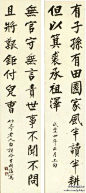 有子孫有田園家風半讀半耕
但以箕裘承祖澤
無官守無言責世事不聞不問
且將艱鉅付兒曹